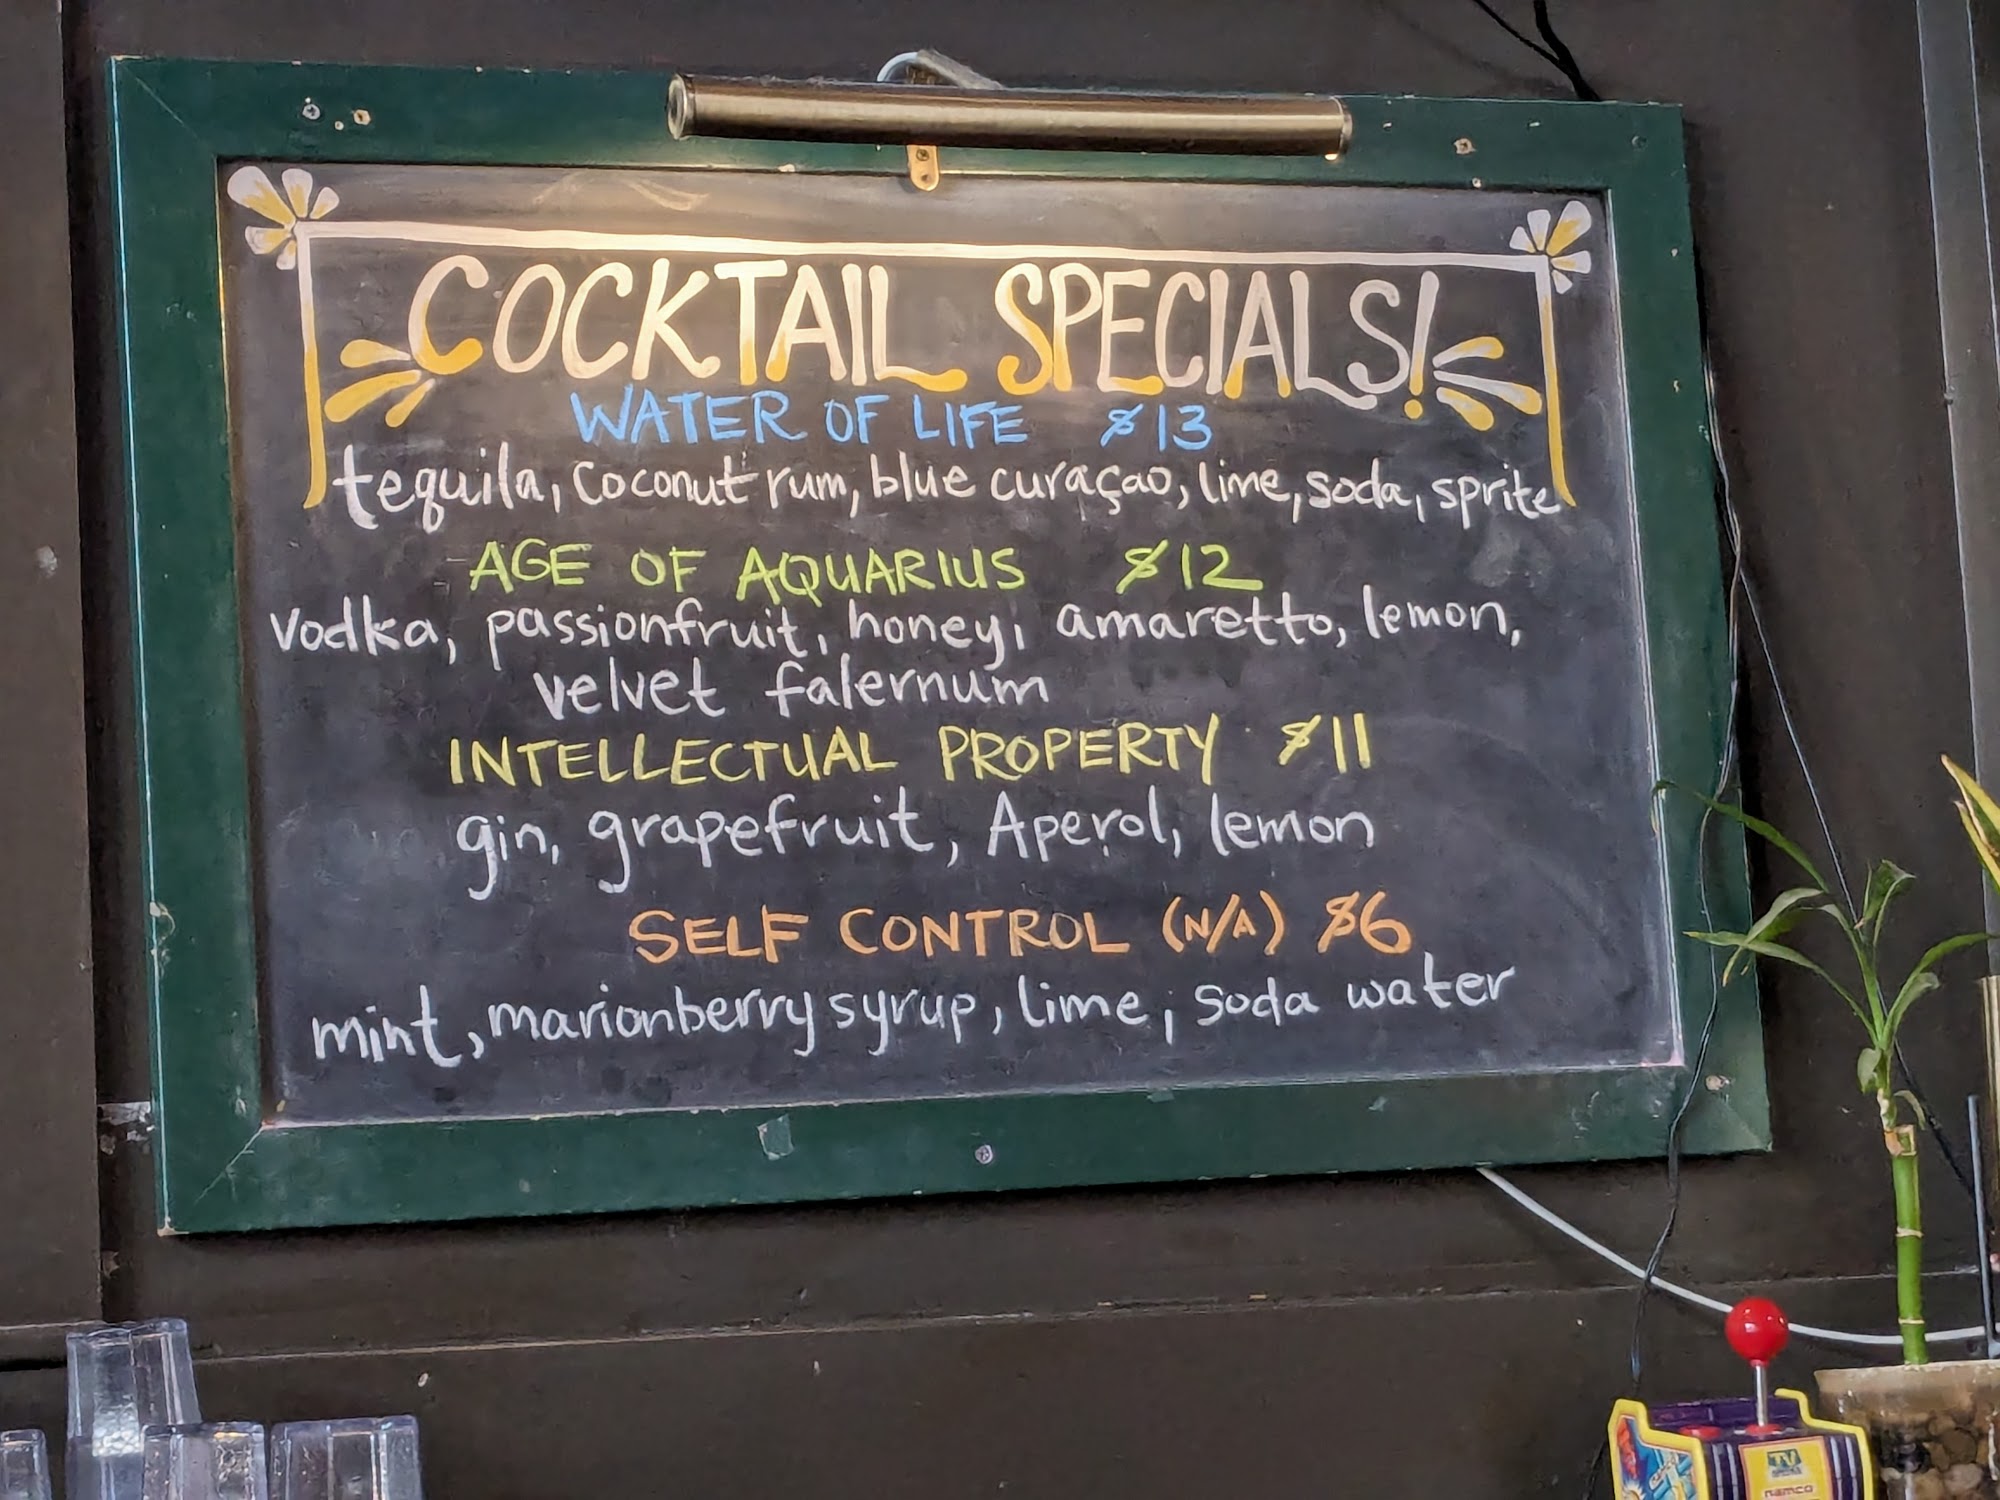 COCKTAIL SPECIALS!
WATER OF LIFE $13
tequila, coconut rum, blue curaçao, lime, soda, sprite
AGE OF AQUARIUS $12
vodka, passionfruit, honey, amaretto, lemon,
velvet falernum
INTELLECTUAL PROPERTY $11
gin, grapefruit, Aperol, lemon
SELF CONTROL (N/A) $6
mint, marionberry syrup, lime, soda water
TV
namco